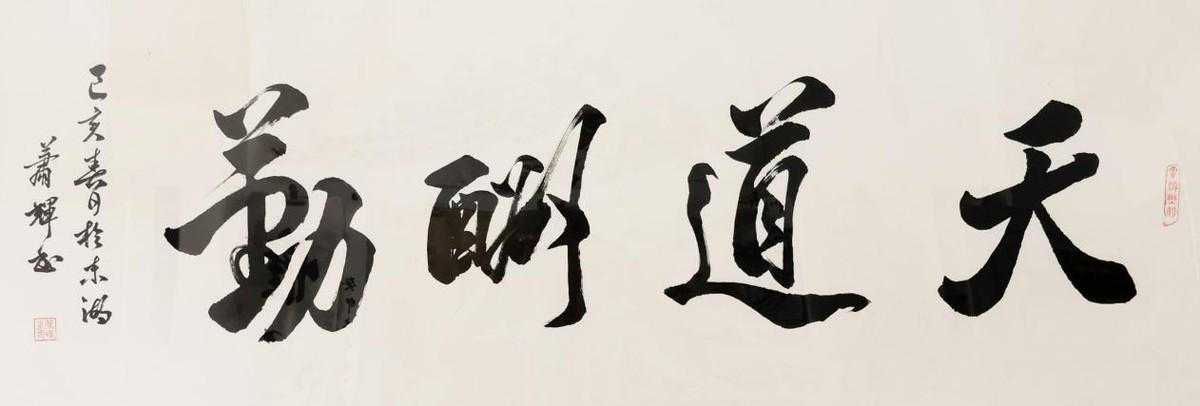 天道酬勤
己亥春月於东湖
萧辉书